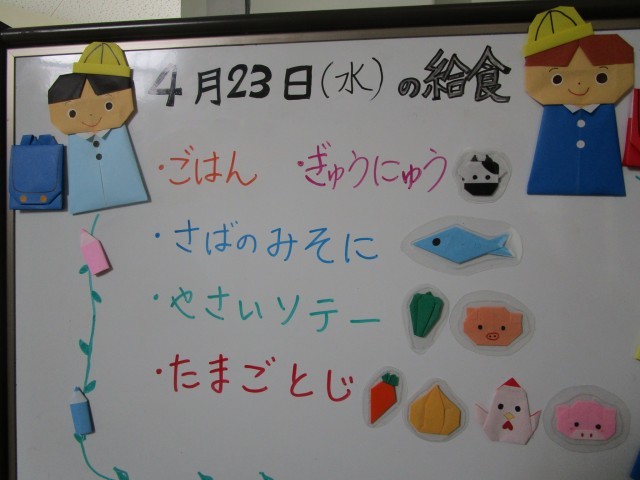 4月23日(水)の給食
・ごはん ・ぎゅうにゅう
・さばのみそに
・やさいソテー
・たまごとじ